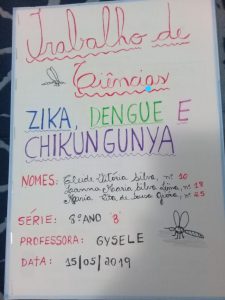 Trabalho de
Ciências
ZIKA, DENGUE E
CHIKUNGUNYA
NOMES: Vitória Silva, nº 10
Joanna Maria Silva Lima, nº 18
Maria Rita de Sousa, nº 25
SÉRIE: 8º ANO "B"
PROFESSORA: GYSELE
DATA: 15/05/2019